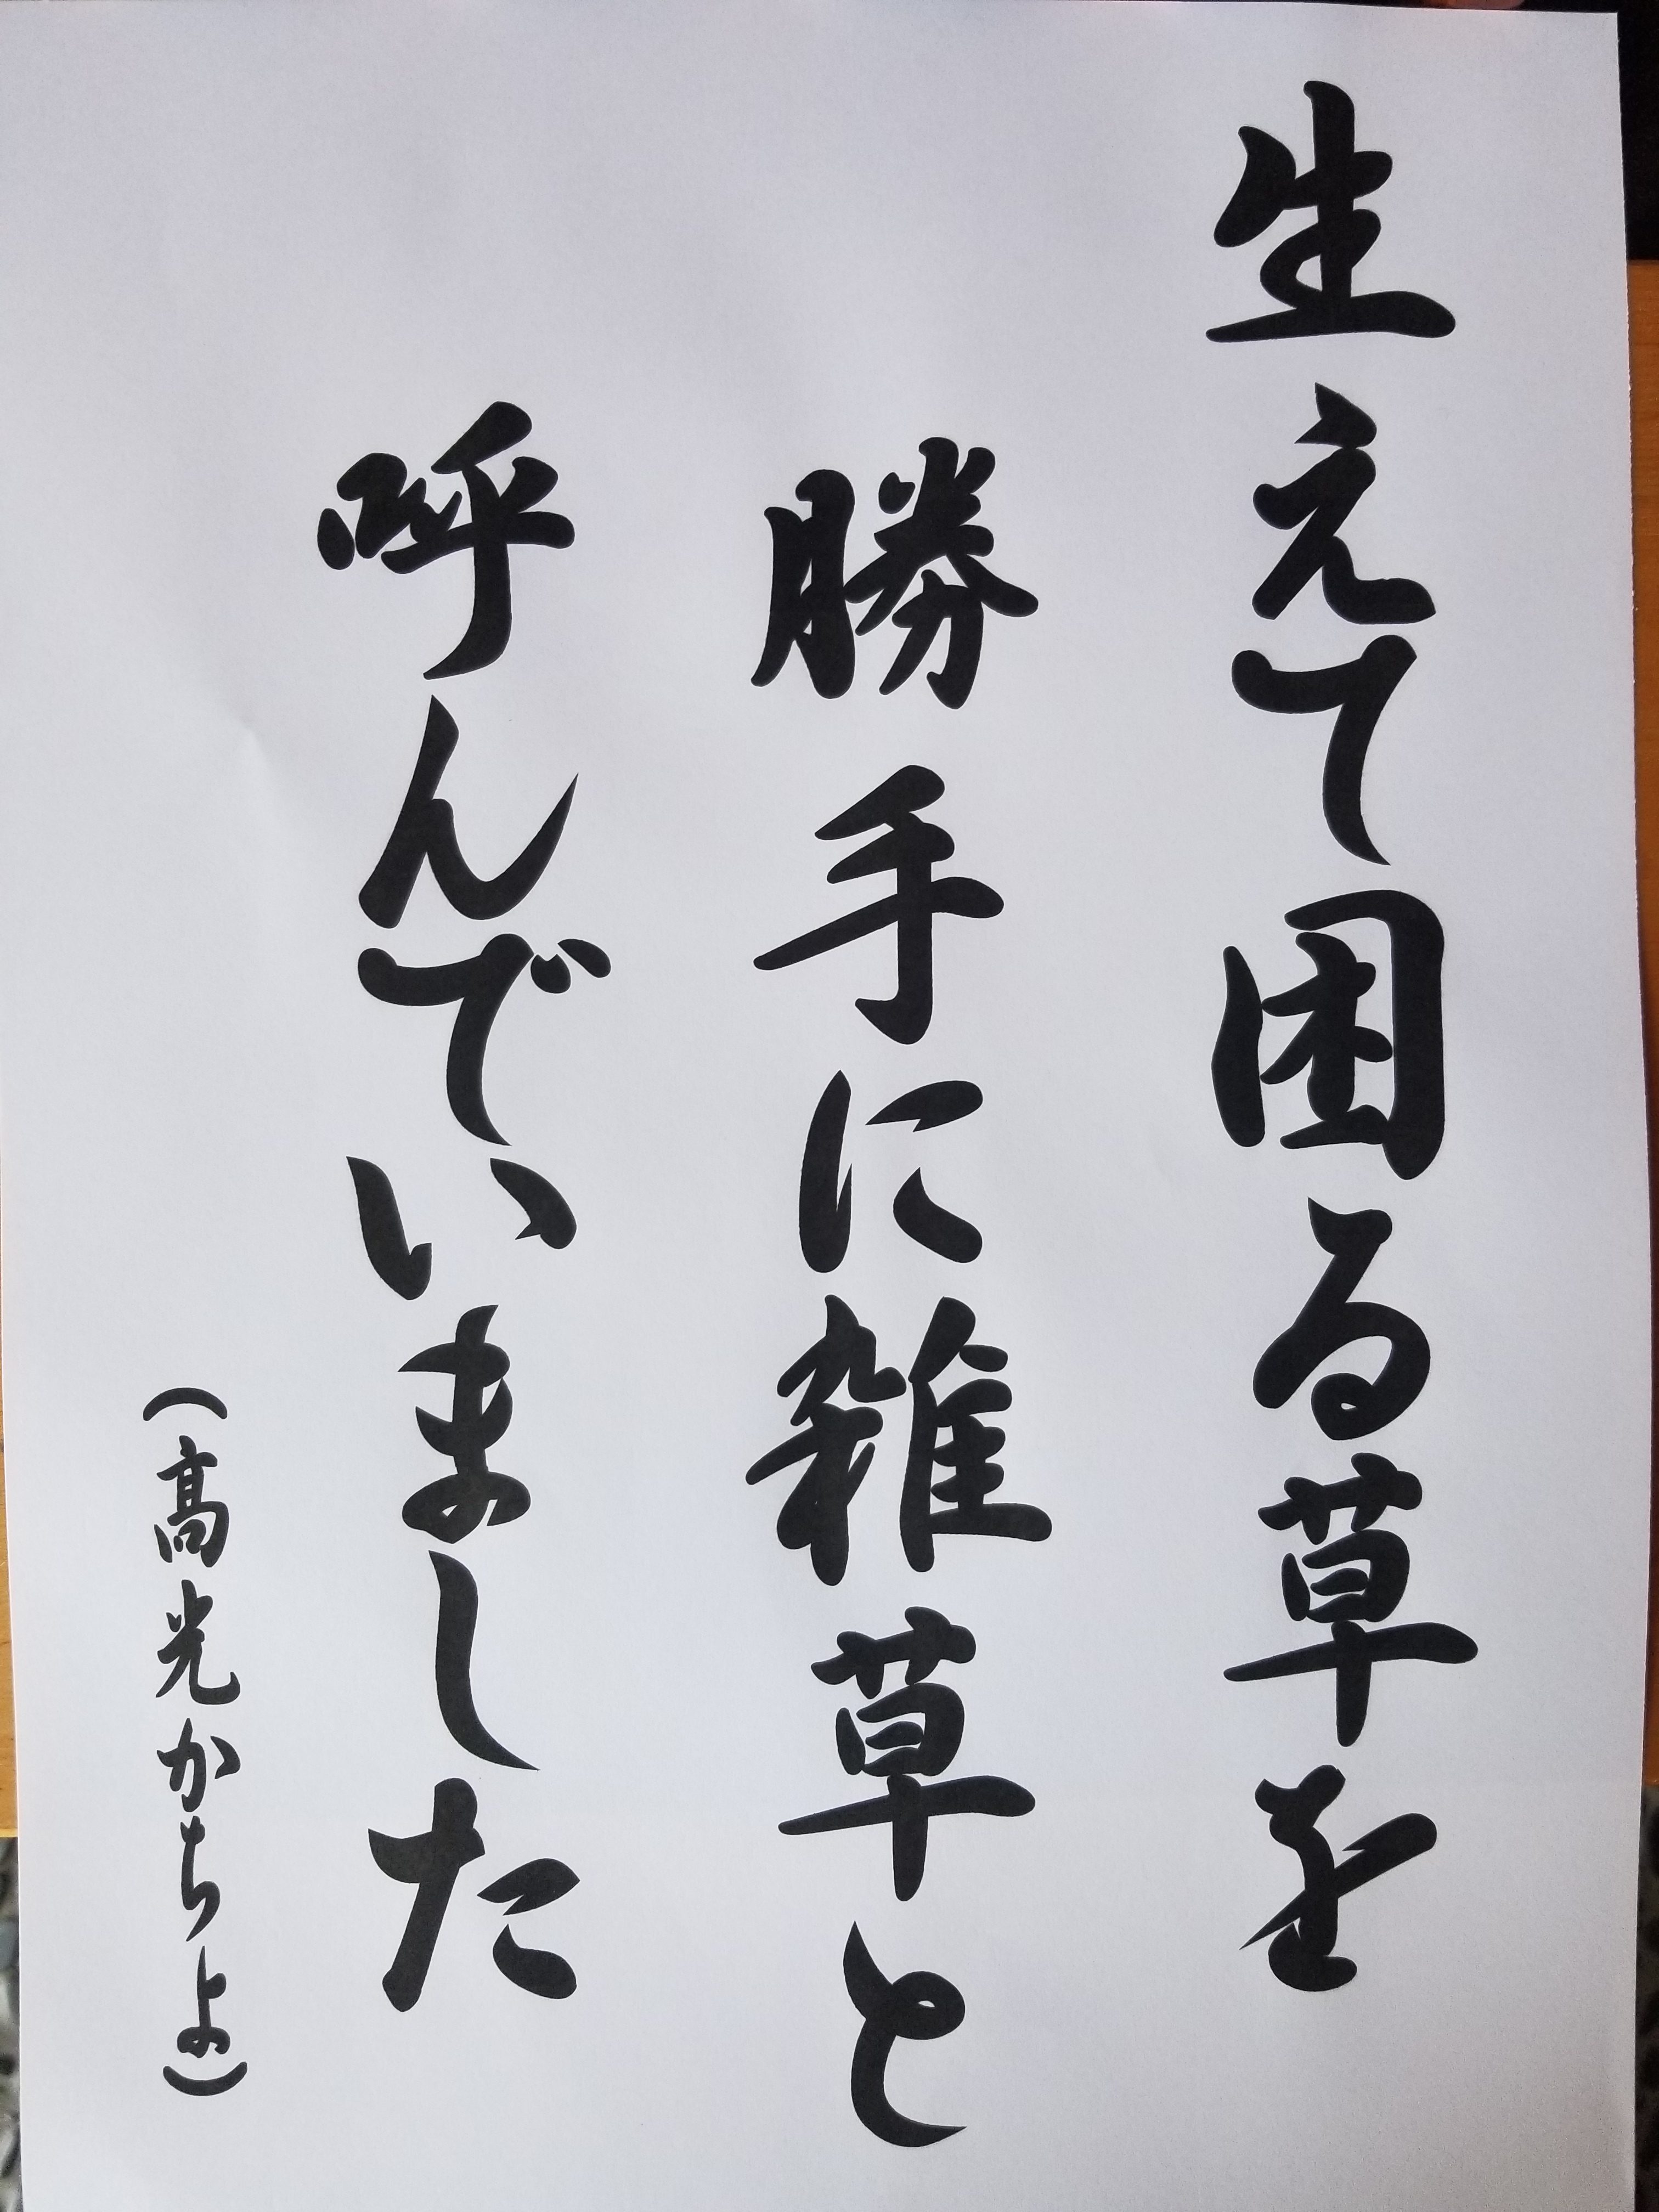 生えて困る草を
勝手に雑草と
呼んでいました
（高光かちよ）